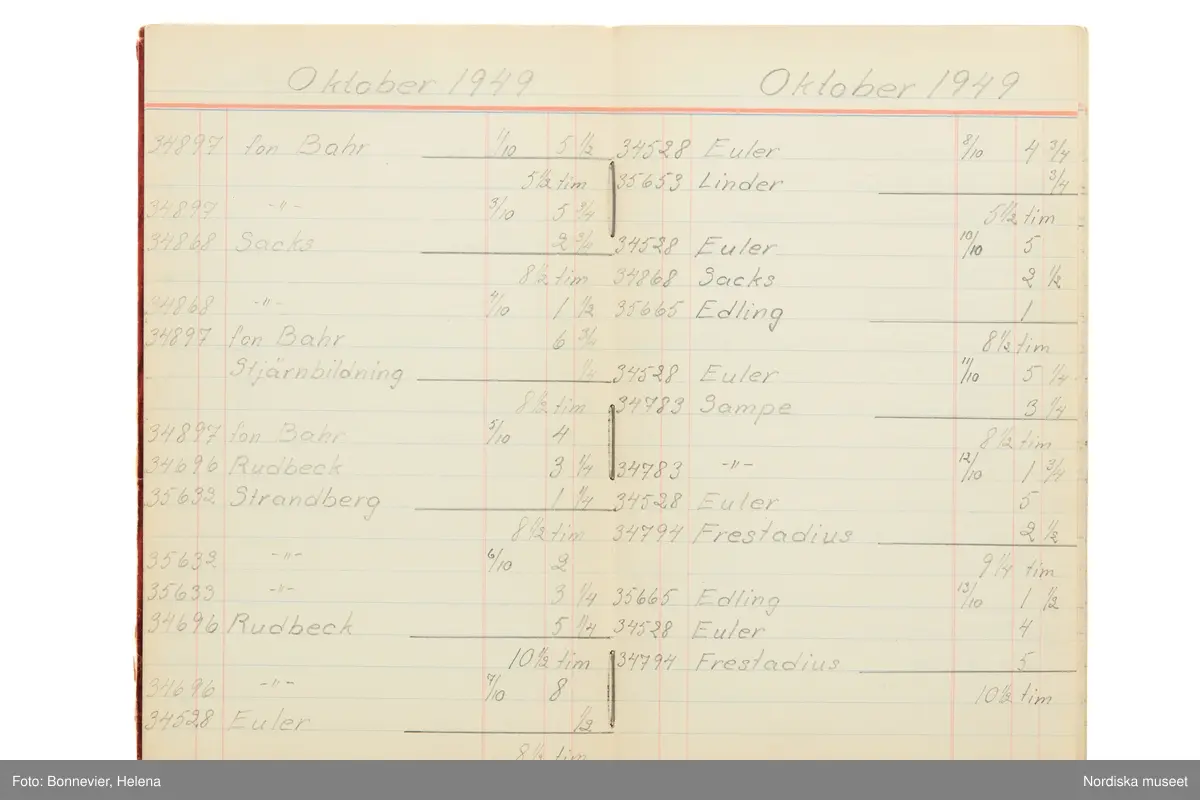 Oktober 1949
34897 fon Bahr 1/10 5 1/2
5 1/2 tim
34897 -"- 3/10 5 3/4
34868 Sacks 2 3/4
8 1/2 tim
34868 -"- 4/10 1 1/2
34897 fon Bahr 6 3/4
Stjärnbildning 1/4
8 1/2 tim
34897 fon Bahr 5/10 4
34696 Rudbeck 3 1/4
35632 Strandberg 1 1/4
8 1/2 tim
35632 -"- 6/10 2
35633 -"- 3 1/4
34696 Rudbeck 5 1/4
10 1/2 tim
34696 -"- 7/10 8
34528 Euler 1/2
8 1/2 tim
Oktober 1949
34528 Euler 8/10 4 3/4
35653 Linder 3/4
5 1/2 tim
34528 Euler 10/10 5
34868 Sacks 2 1/2
35665 Edling 1
8 1/2 tim
34528 Euler 11/10 5 1/4
34783 Sampe 3 1/4
8 1/2 tim
34783 -"- 12/10 1 3/4
34528 Euler 5
34794 Frestadius 2 1/2
9 1/4 tim
35665 Edling 13/10 1 1/2
34528 Euler 4
34794 Frestadius 5
10 1/2 tim
Foto: Bonnevier, Helena
Nordiska museet